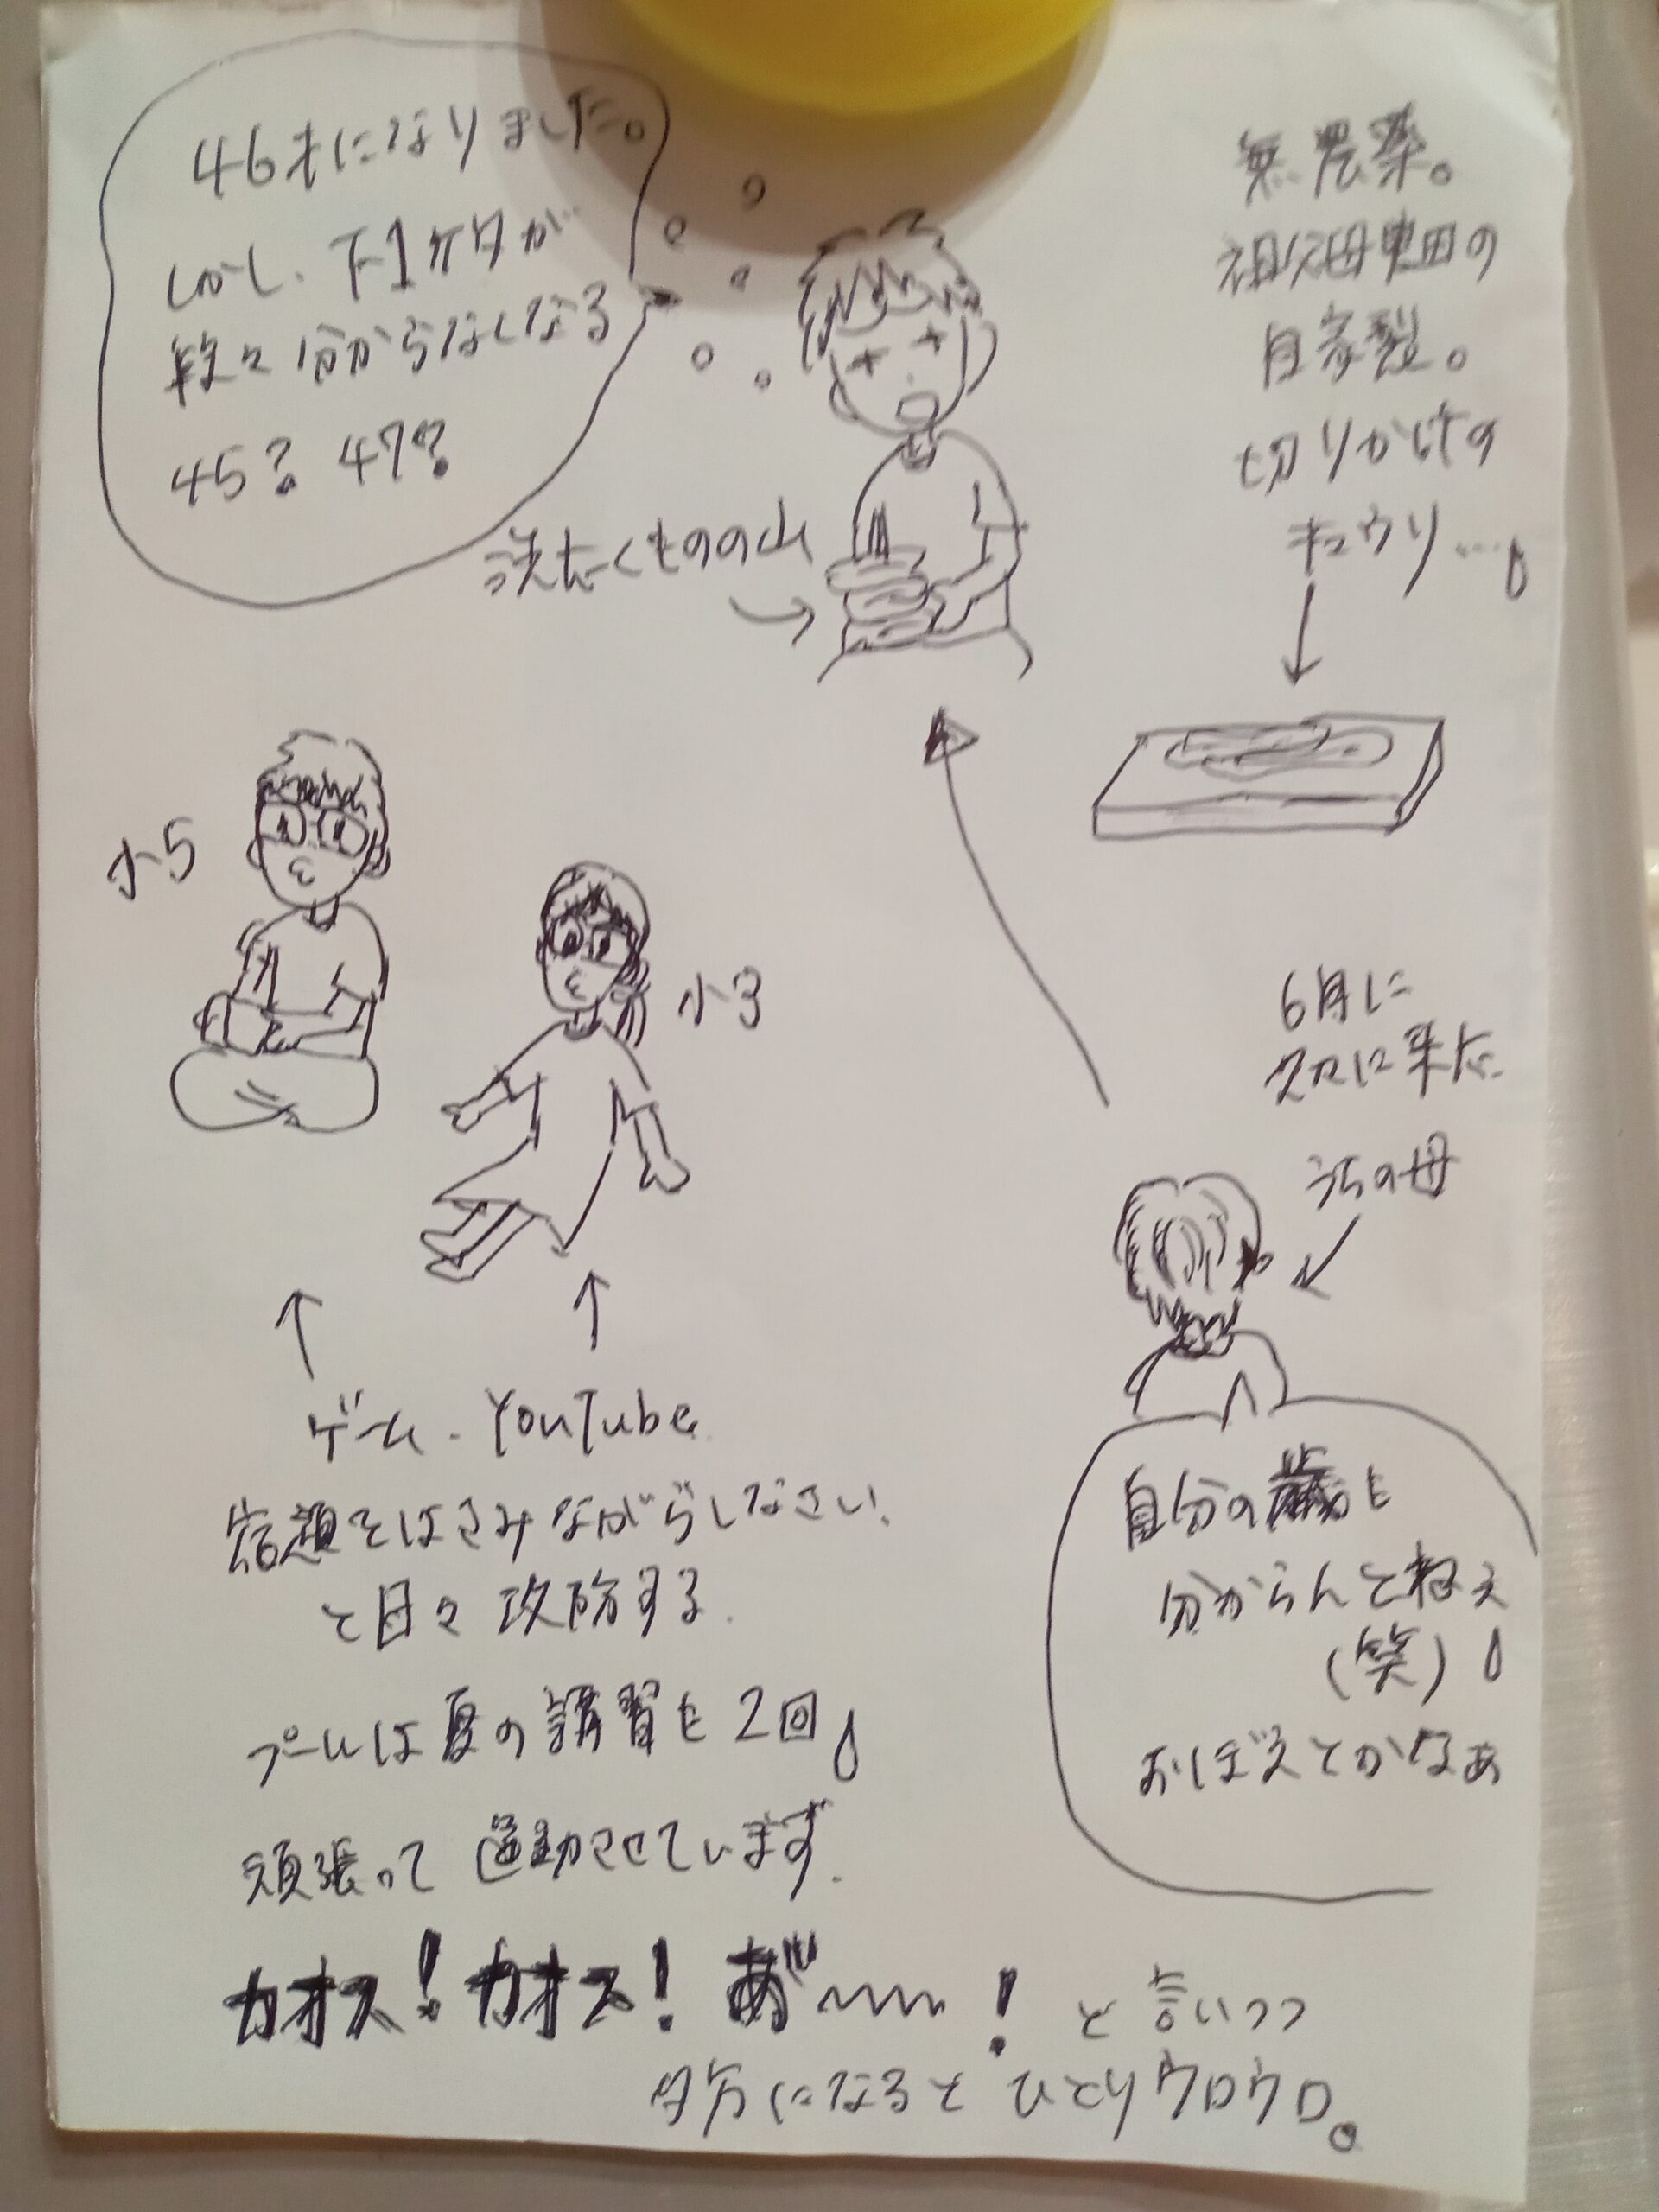 46才になりました。
しかし、下1ケタが
段々分からなくなる
45? 47?
無農薬。
祖父母畑の
自家製。
切りかけの
キュウリ…
洗たくものの山
小5
小3
6月に
久々に来た
うちの母
ゲーム・YouTube
宿題をはさみながらしなさい、
と日々攻防する。
プールは夏の講習も2回
頑張って運動させています。
自分の歳も
分からんとねえ
(笑)
おぼえとかなぁ
カオス!カオス!あ゛〜〜〜!と言いつつ
夕方になるとひとりウロウロ。